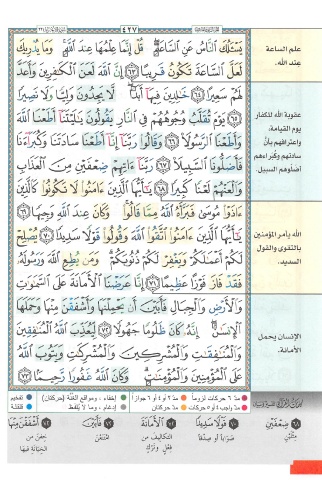 ٤٢٧
يَسْـَٔلُكَ ٱلنَّاسُ عَنِ ٱلسَّاعَةِ ۖ قُلْ إِنَّمَا عِلْمُهَا عِندَ ٱللَّهِ ۚ وَمَا يُدْرِيكَ
لَعَلَّ ٱلسَّاعَةَ تَكُونُ قَرِيبًا ٦٣ إِنَّ ٱللَّهَ لَعَنَ ٱلْكَٰفِرِينَ وَأَعَدَّ
لَهُمْ سَعِيرًا ٦٤ خَٰلِدِينَ فِيهَآ أَبَدًا ۖ لَّا يَجِدُونَ وَلِيًّا وَلَا نَصِيرًا
٦٥ يَوْمَ تُقَلَّبُ وُجُوهُهُمْ فِى ٱلنَّارِ يَقُولُونَ يَٰلَيْتَنَآ أَطَعْنَا ٱللَّهَ
وَأَطَعْنَا ٱلرَّسُولَا۠ ٦٦ وَقَالُوا۟ رَبَّنَآ إِنَّآ أَطَعْنَا سَادَتَنَا وَكُبَرَآءَنَا
فَأَضَلُّونَا ٱلسَّبِيلَا۠ ٦٧ رَبَّنَآ ءَاتِهِمْ ضِعْفَيْنِ مِنَ ٱلْعَذَابِ
وَٱلْعَنْهُمْ لَعْنًا كَبِيرًا ٦٨ يَٰٓأَيُّهَا ٱلَّذِينَ ءَامَنُوا۟ لَا تَكُونُوا۟ كَٱلَّذِينَ
ءَاذَوْا۟ مُوسَىٰ فَبَرَّأَهُ ٱللَّهُ مِمَّا قَالُوا۟ ۚ وَكَانَ عِندَ ٱللَّهِ وَجِيهًا ٦٩
يَٰٓأَيُّهَا ٱلَّذِينَ ءَامَنُوا۟ ٱتَّقُوا۟ ٱللَّهَ وَقُولُوا۟ قَوْلًا سَدِيدًا ٧٠ يُصْلِحْ
لَكُمْ أَعْمَٰلَكُمْ وَيَغْفِرْ لَكُمْ ذُنُوبَكُمْ ۗ وَمَن يُطِعِ ٱللَّهَ وَرَسُولَهُۥ
فَقَدْ فَازَ فَوْزًا عَظِيمًا ٧١ إِنَّا عَرَضْنَا ٱلْأَمَانَةَ عَلَى ٱلسَّمَٰوَٰتِ
وَٱلْأَرْضِ وَٱلْجِبَالِ فَأَبَيْنَ أَن يَحْمِلْنَهَا وَأَشْفَقْنَ مِنْهَا وَحَمَلَهَا
ٱلْإِنسَٰنُ ۖ إِنَّهُۥ كَانَ ظَلُومًا جَهُولًا ٧٢ لِّيُعَذِّبَ ٱللَّهُ ٱلْمُنَٰفِقِينَ
وَٱلْمُنَٰفِقَٰتِ وَٱلْمُشْرِكِينَ وَٱلْمُشْرِكَٰتِ وَيَتُوبَ ٱللَّهُ
عَلَى ٱلْمُؤْمِنِينَ وَٱلْمُؤْمِنَٰتِ ۗ وَكَانَ ٱللَّهُ غَفُورًا رَّحِيمًا ٧٣
علم الساعة
عند الله.
عقوبة الله للكفار
يوم القيامة،
واعترافهم بأن
سادتهم وكبراءهم
أضلوهم السبيل.
الله يأمر المؤمنين
بالتقوى والقول
السديد.
الإنسان يحمل
الأمانة.
مد ٦ حركات لزوماً
مد ٢ أو ٤ أو ٦ جوازاً
إخفاء، ومواقع الغُنَّة (حركتان)
تفخيم
مد واجب ٤ أو ٥ حركات
مد حركتان
إدغام، وما لا يُلفظ
قلقلة
٦٨ ضِعْفَيْنِ
مِثْلَيْنِ
٧٠ سَدِيدًا
صَوَابًا أو صِدْقًا
٧٢ الأَمَانَةَ
التكاليف من
فِعْلٍ وَتَرْكٍ
٧٢ فَأَبَيْنَ
امْتَنَعْنَ
٧٢ أَشْفَقْنَ مِنْهَا
خِفْنَ من
الخيانة فيها